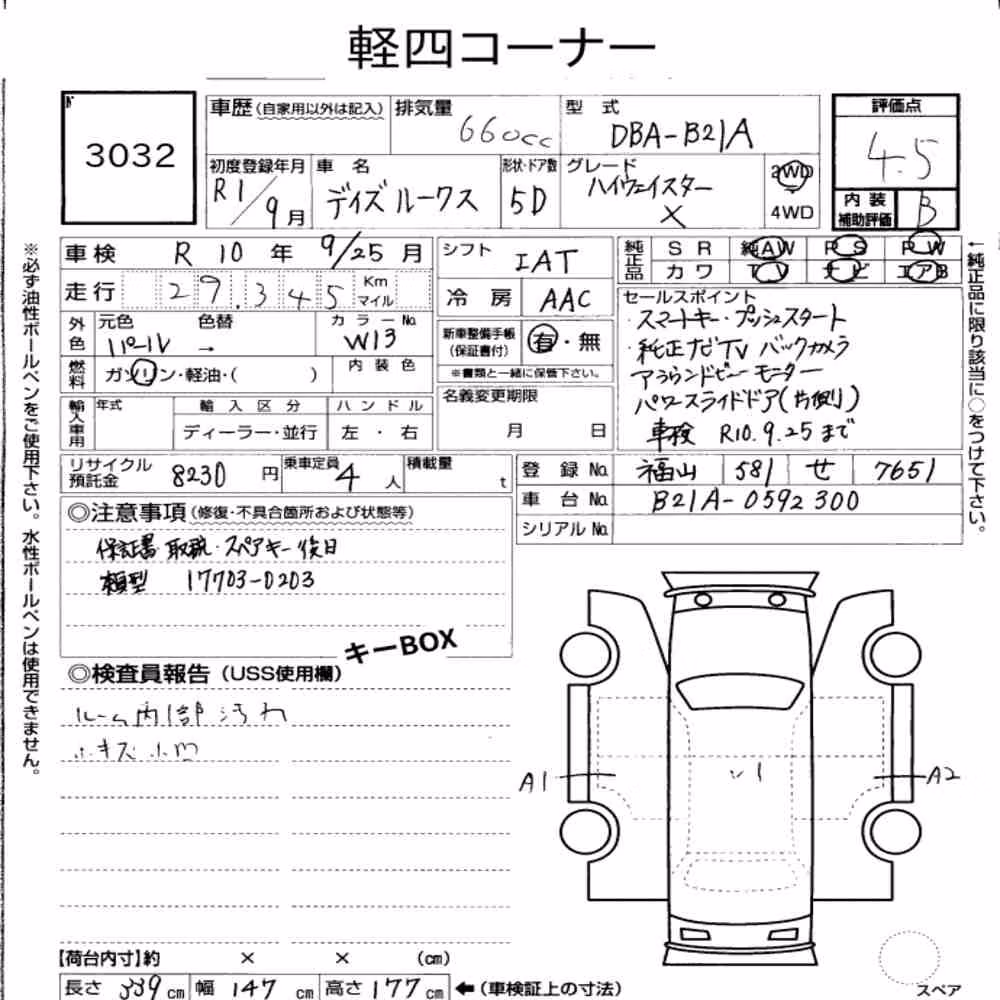 軽四コーナー
3032
車歴(自家用以外は記入)
排気量 660cc
型式 DBA-B21A
評価点 4.5
初度登録年月 R1/9月
車名 デイズルークス
形状・ドア数 5D
グレード ハイウェイスター X
2WD
4WD
内装補助評価 B
車検 R 10年 9/25月
走行 29.345 Km マイル
シフト IAT
冷房 AAC
純正品 SR 純AW PS PW
カワ TV ナビ エアB
外色 元色 パール 色替 → カラーNo. W13
燃料 ガソリン・軽油・( )
内装色
新車整備手帳(保証書付) 有・無
※書類と一緒に保管下さい。
輸入車用 年式 輸入区分 ディーラー・並行 ハンドル 左・右
名義変更期限 月 日
セールスポイント
・スマートキー・プッシュスタート
・純正ナビTV バックカメラ
アラウンドビューモニター
パワースライドドア(片側)
車検 R10.9.25まで
リサイクル預託金 8230円
乗車定員 4人
積載量 t
登録No. 福山 581 せ 7651
車台No. B21A-0592300
シリアルNo.
◎注意事項(修復・不具合箇所および状態等)
保証書 取説・スペアキー後日
類型 17703-0203
キーBOX
◎検査員報告(USS使用欄)
ルーム内部汚れ
小キズ小凹
A1
A2
【荷台内寸】約 × × (cm)
長さ 339cm 幅 147cm 高さ 177cm ←(車検証上の寸法)
スペア
※必ず油性ボールペンをご使用下さい。水性ボールペンは使用できません。
←純正品に限り該当に○をつけて下さい。